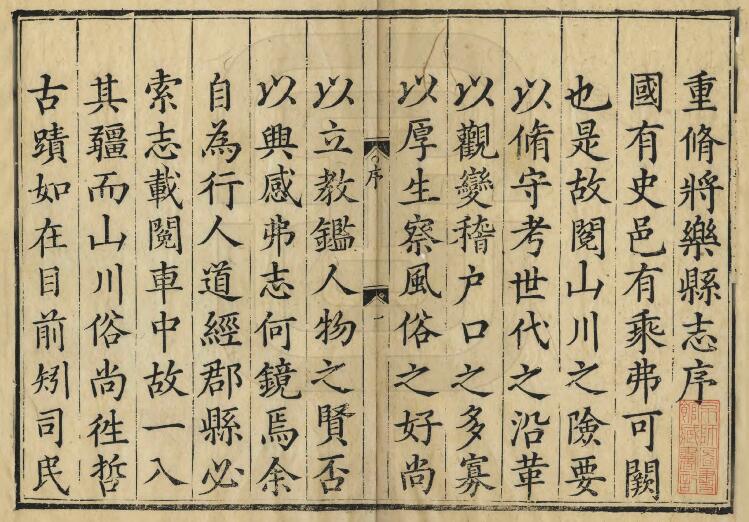 重脩將樂縣志序
國有史邑有乘弗可闕
也是故閱山川之險要
以脩守考世代之沿革
以觀變稽户口之多寡
以厚生察風俗之好尚
序
一
以立教鑑人物之賢否
以興感弗志何鏡焉余
自為行人道經郡縣必
索志載閱車中故一入
其疆而山川俗尚徃哲
古蹟如在目前矧司民